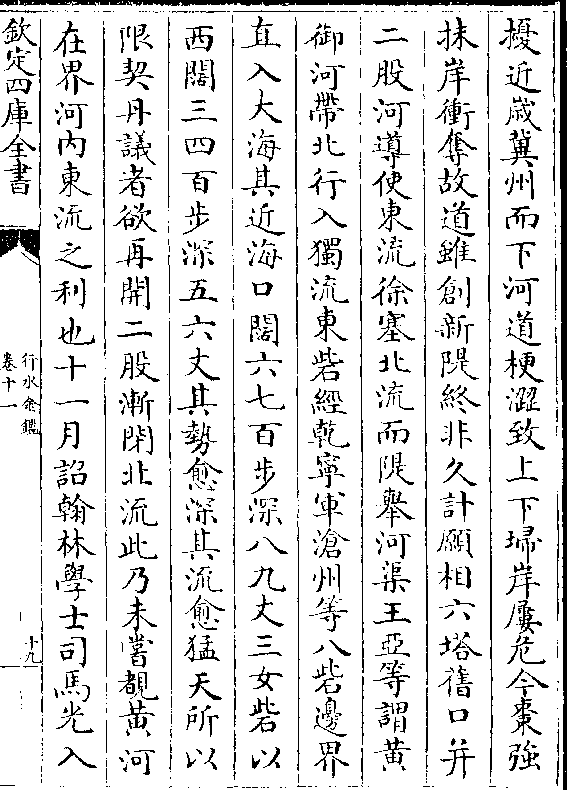 擾近嵗冀州而下河道梗澀致上下埽岸屢危今棗強
抹岸衝奪故道雖創新隄終非久計願相六塔舊口并
二股河導使東流徐塞北流而隄舉河渠王亞等謂黄
御河帶北行入獨流東砦經乾寧軍滄州等八砦邊界
直入大海其近海口闊六七百步深八九丈三女砦以
西闊三四百步深五六丈其勢愈深其流愈猛天所以
限契丹議者欲再開二股漸閉北流此乃未嘗覩黄河
在界河内東流之利也十一月詔翰林學士司馬光入
欽定四庫全書
行水金鑑
卷十一
十九